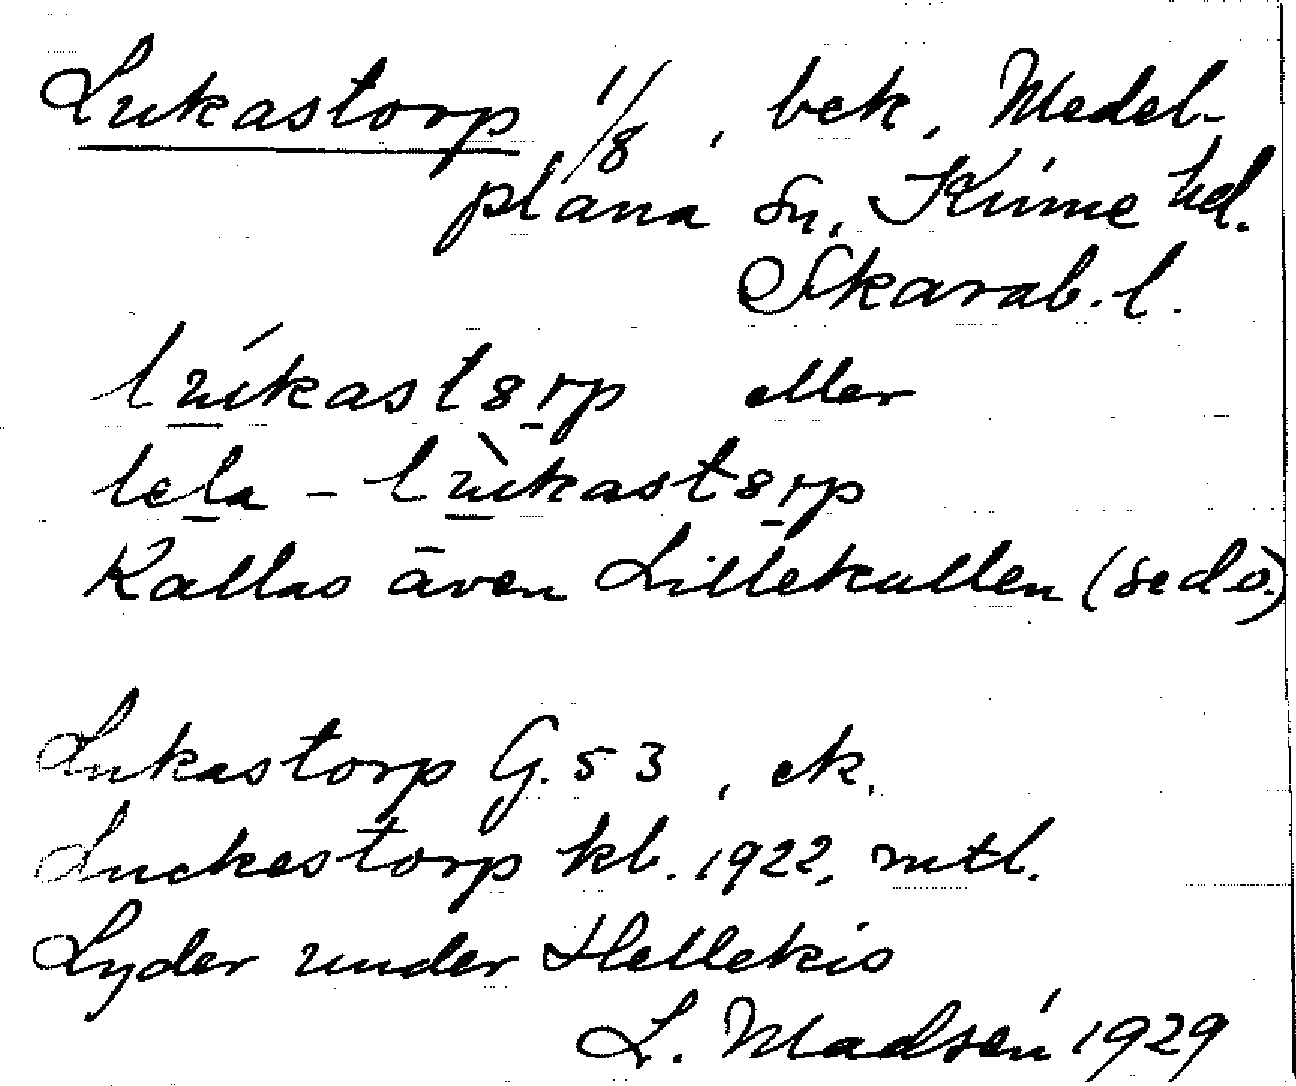 Lukastorp 1/8, bek. Medel-
plana sn, Kinne hd.
Skarab. l.
lúkastorp eller
lela - lùkastorp
Kallas även Lillekullen (se d.o.)
Lukastorp G. 53, ek.
Luckestorp kb. 1922, mtl.
Lyder under Hellekis
L. Madsén 1929